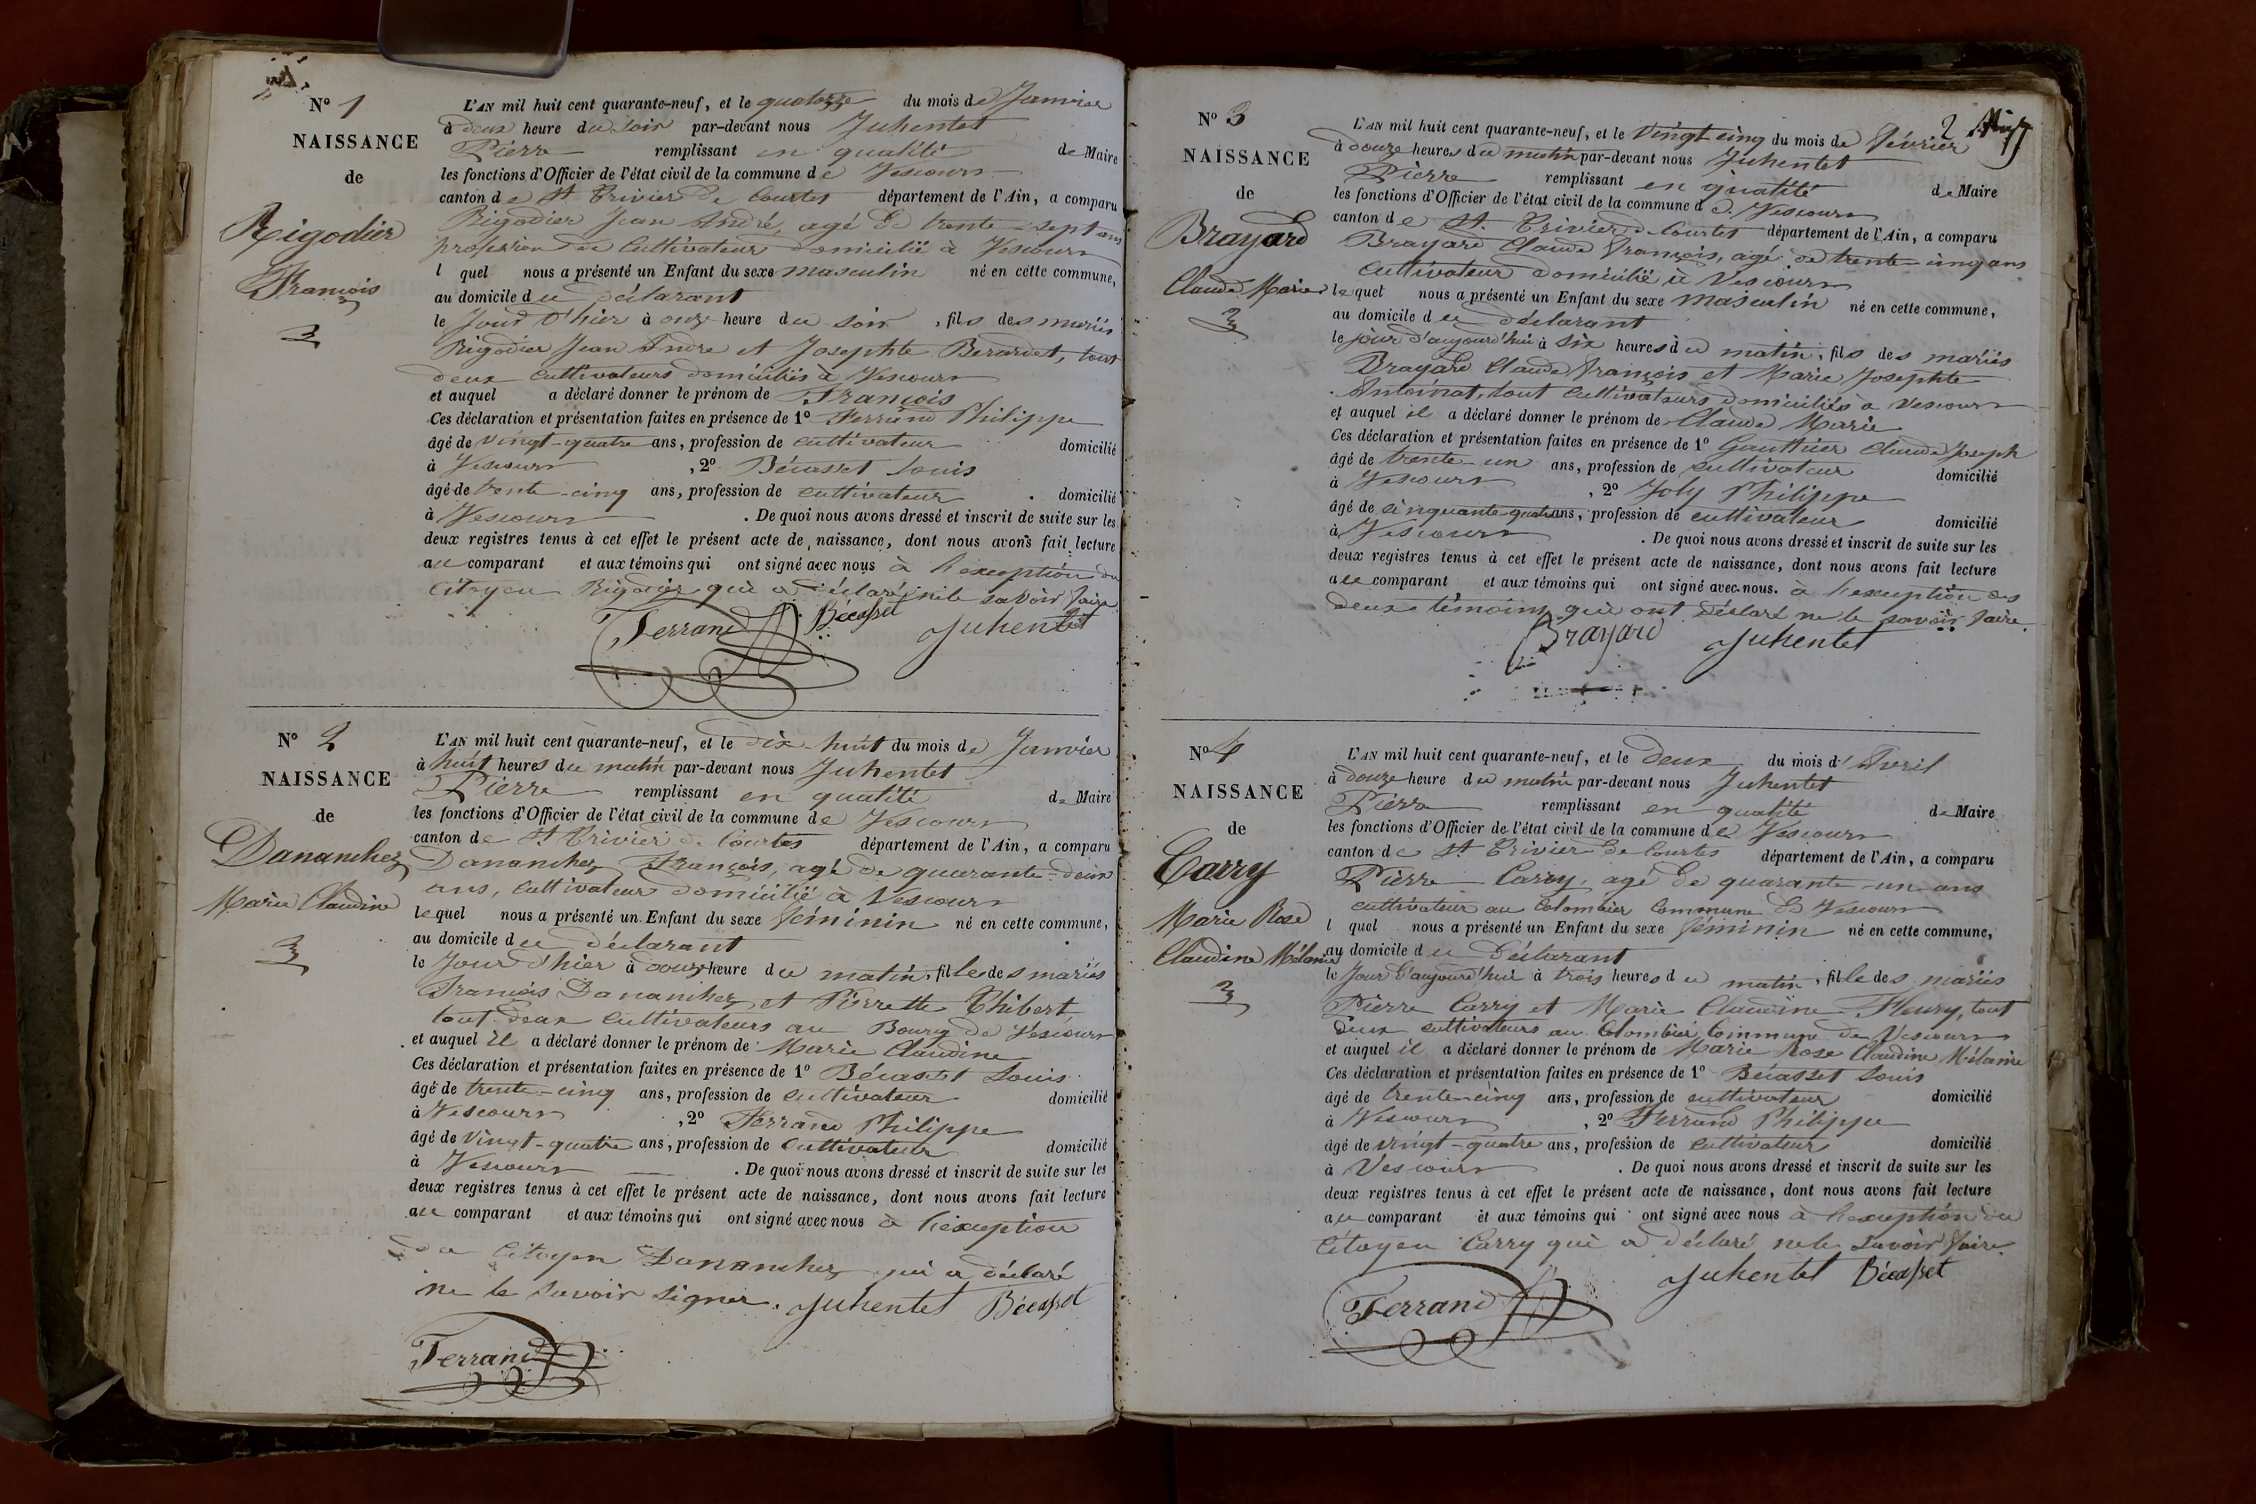 N° 1
NAISSANCE
de
Rigodier
François
L'AN mil huit cent quarante-neuf, et le quatorze du mois de Janvier
à deux heure du soir par-devant nous Juhentet
Pierre remplissant en qualité de Maire
les fonctions d'Officier de l'état civil de la commune de Vescours
canton de St Trivier de Courtes département de l'Ain, a comparu
Rigodier Jean André, agé de trente-sept ans
profession de Cultivateur domicilié à Vescours
l quel nous a présenté un Enfant du sexe masculin né en cette commune,
au domicile du déclarant
le Jour d'hier à onze heure du soir, fils des mariés
Rigodier Jean Andre et Josephte Berardet, tout
deux cultivateurs domiciliés à Vescours
et auquel a déclaré donner le prénom de François
Ces déclaration et présentation faites en présence de 1° Ferrand Philippe
âgé de vingt-quatre ans, profession de cultivateur domicilié
à Vescours, 2° Bécasset Louis
âgé de trente-cinq ans, profession de cultivateur domicilié
à Vescours. De quoi nous avons dressé et inscrit de suite sur les
deux registres tenus à cet effet le présent acte de naissance, dont nous avons fait lecture
au comparant et aux témoins qui ont signé avec nous à l'exception du
Citoyen Rigodier qui a déclaré ne le savoir faire.
Ferrand Bécasset Juhentet
N° 2
NAISSANCE
de
Dananchez
Marie Claudine
L'AN mil huit cent quarante-neuf, et le dix-huit du mois de Janvier
à huit heures du matin par-devant nous Juhentet
Pierre remplissant en qualité de Maire
les fonctions d'Officier de l'état civil de la commune de Vescours
canton de St Trivier de Courtes département de l'Ain, a comparu
Dananchez François, agé de quarante-deux
ans, cultivateur domicilié à Vescours
lequel nous a présenté un Enfant du sexe féminin né en cette commune,
au domicile du déclarant
le Jour d'hier à douze heure du matin, fille des mariés
François Dananchez et Pierrette Thibert
tout deux cultivateurs au Bourg de Vescours
et auquel il a déclaré donner le prénom de Marie Claudine
Ces déclaration et présentation faites en présence de 1° Bécasset Louis
âgé de trente-cinq ans, profession de cultivateur domicilié
à Vescours, 2° Ferrand Philippe
âgé de vingt-quatre ans, profession de cultivateur domicilié
à Vescours. De quoi nous avons dressé et inscrit de suite sur les
deux registres tenus à cet effet le présent acte de naissance, dont nous avons fait lecture
au comparant et aux témoins qui ont signé avec nous à l'exception
du Citoyen Dananchez qui a déclaré
ne le savoir signer. Juhentet Bécasset
Ferrand
2
N° 3
NAISSANCE
de
Brayard
Claude Marie
L'AN mil huit cent quarante-neuf, et le vingt cinq du mois de Février
à douze heures du matin par-devant nous Juhentet
Pierre remplissant en qualité de Maire
les fonctions d'Officier de l'état civil de la commune d e. Vescours
canton de St. Trivier de Courtes département de l'Ain, a comparu
Brayard Claude François, agé de trente-cinq ans
cultivateur domicilié à Vescours
lequel nous a présenté un Enfant du sexe masculin né en cette commune,
au domicile du déclarant
le jour d'aujourd'hui à six heures du matin, fils des mariés
Brayard Claude François et Marie Josephte
Antoinat, tout cultivateurs domiciliés à Vescours
et auquel il a déclaré donner le prénom de Claude Marie
Ces déclaration et présentation faites en présence de 1° Gauthier Claude Joseph
âgé de trente-un ans, profession de cultivateur domicilié
à Vescours, 2° Joly Philippe
âgé de cinquante-quatre ans, profession de cultivateur domicilié
à Vescours. De quoi nous avons dressé et inscrit de suite sur les
deux registres tenus à cet effet le présent acte de naissance, dont nous avons fait lecture
au comparant et aux témoins qui ont signé avec nous. à l'exception des
deux témoins qui ont déclaré ne le savoir faire.
Brayard Juhentet
N° 4
NAISSANCE
de
Carry
Marie Rose
Claudine Mélanie
L'AN mil huit cent quarante-neuf, et le deux du mois d'Avril
à douze heure du matin par-devant nous Juhentet
Pierre remplissant en qualité de Maire
les fonctions d'Officier de l'état civil de la commune de Vescours
canton de St. Trivier de Courtes département de l'Ain, a comparu
Pierre Carry, agé de quarante-un-ans
cultivateur au Colombier Commune de Vescours
l quel nous a présenté un Enfant du sexe féminin né en cette commune,
au domicile du déclarant
le Jour d'aujourd'hui à trois heures du matin, fille des mariés
Pierre Carry et Marie Claudine Fleury, tout
deux cultivateurs au Colombier Commune de Vescours
et auquel il a déclaré donner le prénom de Marie Rose Claudine Mélanie
Ces déclaration et présentation faites en présence de 1° Bécasset Louis
âgé de trente-cinq ans, profession de cultivateur domicilié
à Vescours, 2° Ferrand Philippe
âgé de vingt-quatre ans, profession de cultivateur domicilié
à Vescours. De quoi nous avons dressé et inscrit de suite sur les
deux registres tenus à cet effet le présent acte de naissance, dont nous avons fait lecture
au comparant et aux témoins qui ont signé avec nous à l'exception du
Citoyen Carry qui a déclaré ne le savoir faire.
Juhentet Bécasset
Ferrand